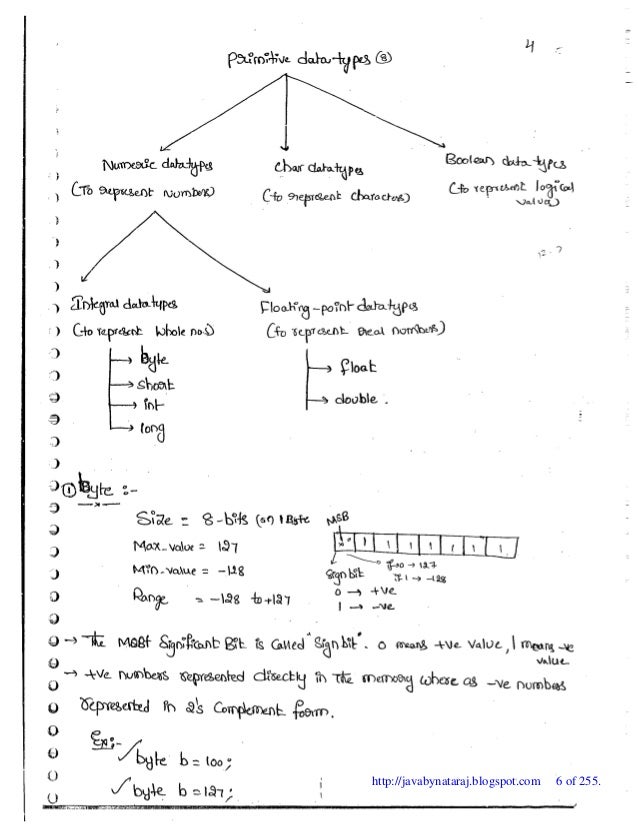 4
Primitive data-types (8)
Numeric datatypes
(To represent Numbers)
Char datatypes
(to represent characters)
Boolean data types
(to represent logical
values)
Integral datatypes
(to represent whole no.s)
Floating-point datatypes
(to represent real numbers)
→ byte
→ short
→ int
→ long
→ float
→ double.
① Byte :-
Size = 8-bits (or) 1 Byte
MSB
Max-value = 127
Min-value = -128
Range = -128 to +127
1 1 1 1 1 1 1
Sign bit
If 0 → 127
If 1 → -128
0 → +ve
1 → -ve
→ The Most Significant Bit is called "Sign bit". 0 means +ve value, 1 means -ve
value
→ +ve numbers represented directly in the memory where as -ve numbers
represented in 2's complement form.
Ex:-
✓ byte b = 100;
✓ byte b = 127;
http://javabynataraj.blogspot.com 6 of 255.